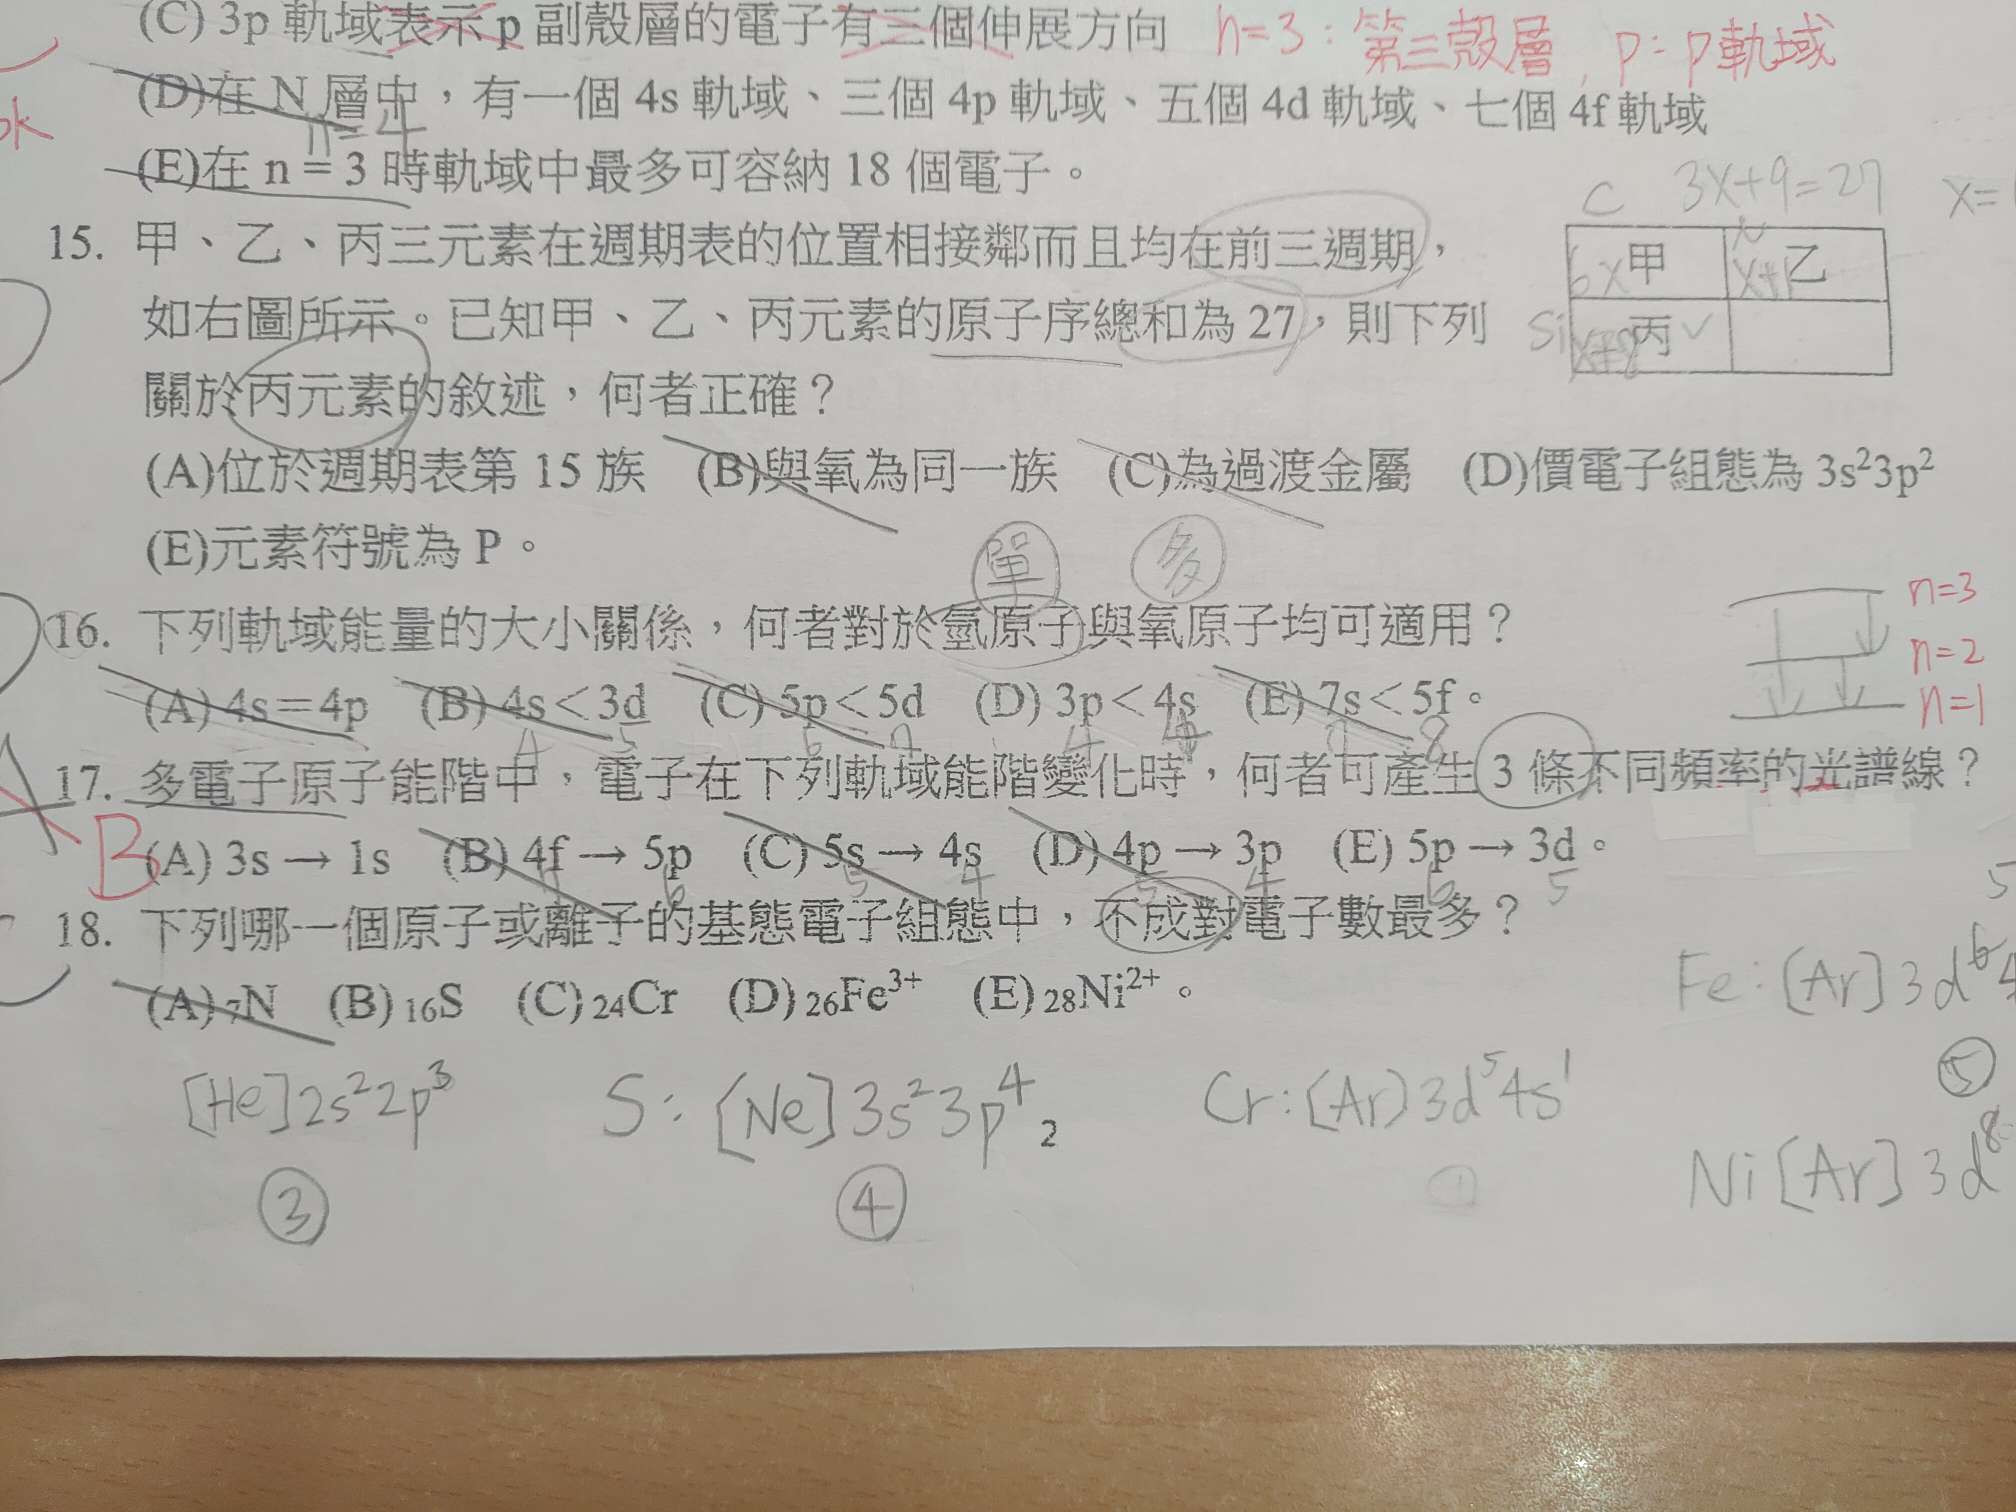 (C) 3p 軌域表示 p 副殼層的電子有三個伸展方向 n=3：第三殼層，p：p軌域
(D)在 N 層中，有一個 4s 軌域、三個 4p 軌域、五個 4d 軌域、七個 4f 軌域
n=4
(E)在 n = 3 時軌域中最多可容納 18 個電子。
C 3x+9=27 x=
15. 甲、乙、丙三元素在週期表的位置相接鄰而且均在前三週期，
6 x 甲 N x+1 乙
如右圖所示。已知甲、乙、丙元素的原子序總和為 27，則下列
Si x+8 丙 ✓
關於丙元素的敘述，何者正確？
(A)位於週期表第 15 族 (B)與氧為同一族 (C)為過渡金屬 (D)價電子組態為 3s²3p²
(E)元素符號為 P。
單 多
16. 下列軌域能量的大小關係，何者對於氫原子與氧原子均可適用？
n=3
n=2
n=1
(A) 4s＝4p (B) 4s＜3d (C) 5p＜5d (D) 3p＜4s (E) 7s＜5f。
4 5 6 7 4 4 7 8
17. 多電子原子能階中，電子在下列軌域能階變化時，何者可產生 3 條不同頻率的光譜線？
B
(A) 3s → 1s (B) 4f → 5p (C) 5s → 4s (D) 4p → 3p (E) 5p → 3d。
7 6 5 4 5 4 6 5
18. 下列哪一個原子或離子的基態電子組態中，不成對電子數最多？
(A) ₇N (B) ₁₆S (C) ₂₄Cr (D) ₂₆Fe³⁺ (E) ₂₈Ni²⁺。
Fe：[Ar]3d⁶4
⑤
[He]2s²2p³ S：[Ne]3s²3p⁴ 2 Cr：[Ar]3d⁵4s¹
Ni[Ar]3d⁸
③ ④